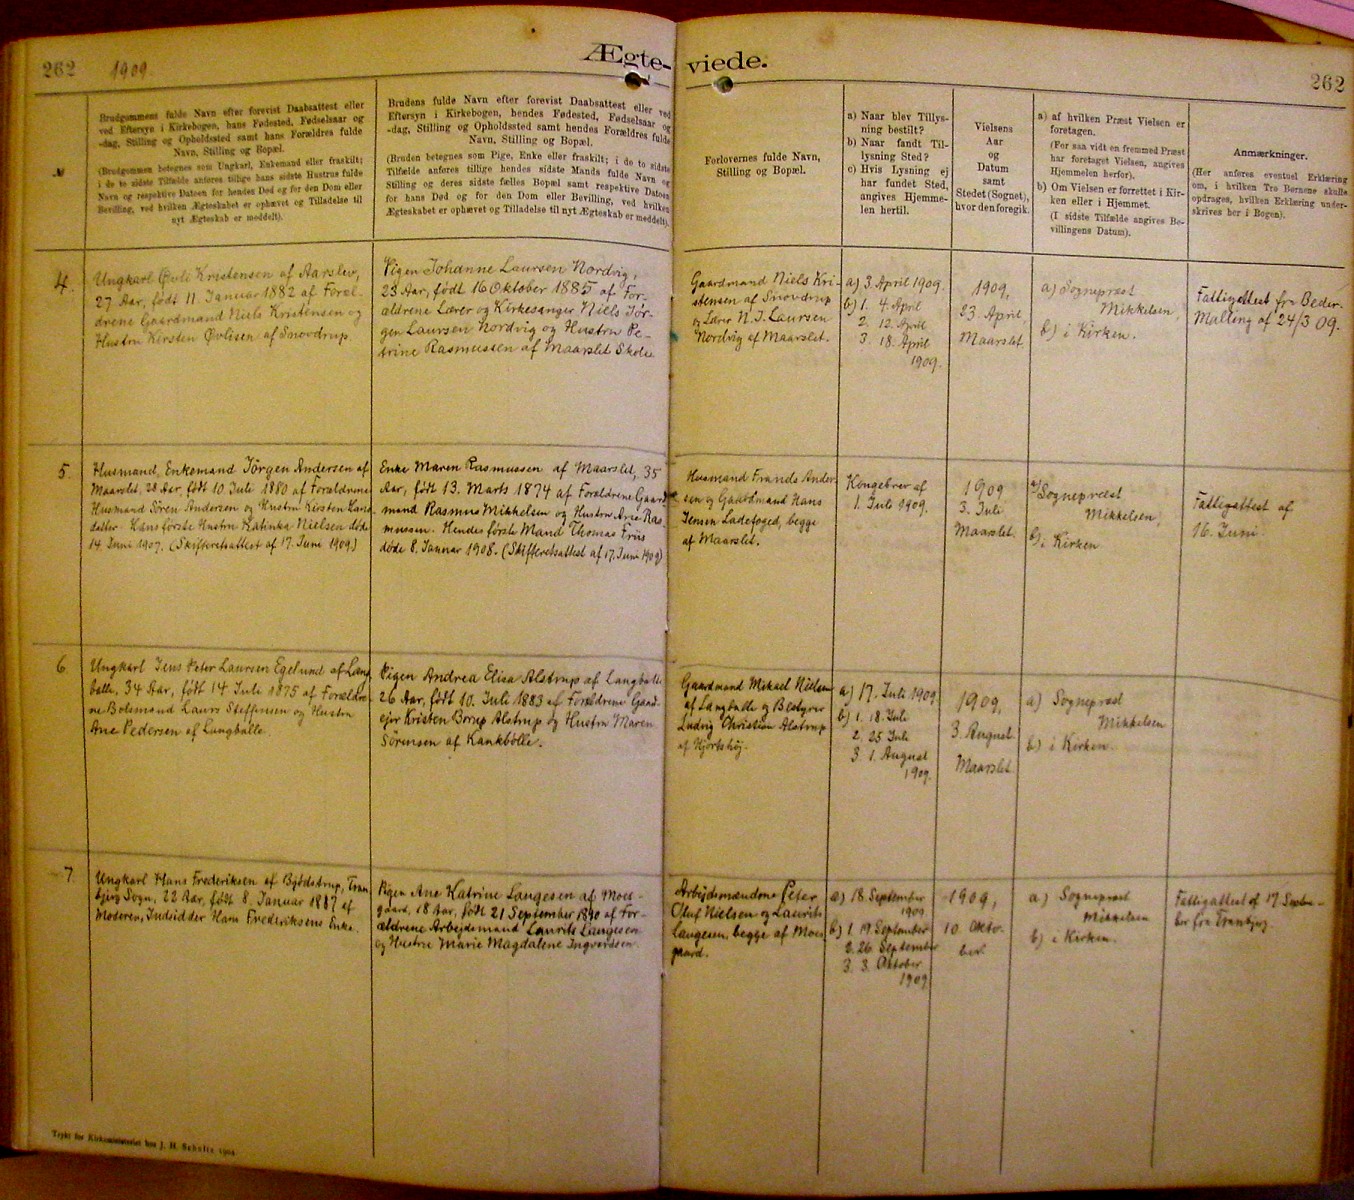 262 1909.
Ægte-
viede.
262
№
Brudgommens fulde Navn efter forevist Daabsattest eller
ved Eftersyn i Kirkebogen, hans Fødested, Fødselsaar og
-dag, Stilling og Opholdssted samt hans Forældres fulde
Navn, Stilling og Bopæl.
(Brudgommen betegnes som Ungkarl, Enkemand eller fraskilt;
i de to sidste Tilfælde anføres tillige hans sidste Hustrus fulde
Navn og respektive Datoen for hendes Død og for den Dom eller
Bevilling, ved hvilken Ægteskabet er ophævet og Tilladelse til
nyt Ægteskab er meddelt).
Brudens fulde Navn efter forevist Daabsattest eller ved
Eftersyn i Kirkebogen, hendes Fødested, Fødselsaar og
-dag, Stilling og Opholdssted samt hendes Forældres fulde
Navn, Stilling og Bopæl.
(Bruden betegnes som Pige, Enke eller fraskilt; i de to sidste
Tilfælde anføres tillige hendes sidste Mands fulde Navn og
Stilling og deres sidste fælles Bopæl samt respektive Datoen
for hans Død og for den Dom eller Bevilling, ved hvilken
Ægteskabet er ophævet og Tilladelse til nyt Ægteskab er meddelt).
Forlovernes fulde Navn,
Stilling og Bopæl.
a) Naar blev Tillys-
ning bestilt?
b) Naar fandt Til-
lysning Sted?
c) Hvis Lysning ej
har fundet Sted,
angives Hjemme-
len hertil.
Vielsens
Aar
og
Datum
samt
Stedet (Sognet),
hvor den foregik.
a) af hvilken Præst Vielsen er
foretagen.
(For saa vidt en fremmed Præst
har foretaget Vielsen, angives
Hjemmelen herfor).
b) Om Vielsen er forrettet i Kir-
ken eller i Hjemmet.
(I sidste Tilfælde angives Be-
villingens Datum).
Anmærkninger.
(Her anføres eventuel Erklæring
om, i hvilken Tro Børnene skulle
opdrages, hvilken Erklæring under-
skrives her i Bogen).
4.
Ungkarl Øvli Kristensen af Aarslev,
27 Aar, født 11. Januar 1882 af Foræl-
drene Gaardmand Niels Kristensen og
Hustru Kirsten Øvlisen af Snovdrup
Pigen Johanne Laursen Nordvig,
23 Aar, født 16 Oktober 1885 af For-
ældrene Lærer og Kirkesanger Niels Jør-
gen Laursen Nordvig og Hustru Pe-
trine Rasmussen af Maarslet Skole.
Gaardmand Niels Kri-
stensen af Snovdrup
og Lærer N. J. Laursen
Nordvig af Maarslet.
a) 3. April 1909.
b) 1. 4. April
2. 12. April
3. 18. April
1909.
1909,
23 April
Maarslet.
a) Sognepræst
Mikkelsen,
b) i Kirken.
Fattigattest fra Beder-
Malling af 24/3 09.
5.
Husmand, Enkemand Jörgen Andersen af
Maarslet, 28 Aar, født 10 Juli 1880 af Forældrene
Husmand Sören Andersen og Hustru Kirsten Kars
datter. Hans første Hustru Katinka Nielsen døde
14 Juni 1907. (Skifteretsattest af 17. Juni 1909.)
Enke Maren Rasmussen af Maarslet, 35
Aar, født 13. Marts 1874 af Forældrene Gaard
mand Rasmus Mikkelsen og Hustru Ane Ras
mussen. Hendes første Mand Thomas Friis
døde 8. Januar 1908. (Skifteretsattest af 17. Juni 1909)
Husmand Frands Ander-
sen og Gaardmand Hans
Jensen Ladefoged, begge
af Maarslet.
Kongebrev af
1. Juli 1909.
1909
3. Juli
Maarslet.
a) Sognepræst
Mikkelsen,
b) i Kirken
Fattigattest af
16. Juni.
6
Ungkarl Jens Peter Laursen Egelund af Lang
balle, 34 Aar, født 14 Juli 1875 af Forældre-
ne Bolsmand Laurs Steffensen og Hustru
Ane Pedersen af Langballe.
Pigen Andrea Elisa Alstrup af Langballe
26 Aar, født 10. Juli 1883 af Forældrene Gaard
ejer Kristen Borup Alstrup og Hustru Maren
Sørensen af Kankbølle.
Gaardmand Mikael Nielsen
af Langballe og Bestyrer
Ludvig Christian Alstrup
af Hjortshøj.
a) 17. Juli 1909
b) 1. 18. Juli
2. 25 Juli
3. 1. August
1909.
1909,
3. August
Maarslet
a) Sognepræst
Mikkelsen
b) i Kirken.
7.
Ungkarl Hans Frederiksen af Bjødstrup, Tran
bjerg Sogn, 22 Aar, født 8. Januar 1887 af
Moderen, Indsidder Hans Frederiksens Enke.
Pigen Ane Katrine Laugesen af Moes-
gaard, 18 Aar, født 21 September 1890 af For-
ældrene Arbejdsmand Laurits Laugesen
og Hustru Marie Magdalene Ingvardsen.
Arbejdsmændene Peter
Oluf Nielsen og Laurits
Laugesen, begge af Moes
gaard.
a) 18. September
1909
b) 1. 19. September
2. 26. September
3. 3. Oktober
1909
1909,
10. Okto-
ber.
a) Sognepræst
Mikkelsen
b) i Kirken.
Fattigattest af 17. Septem-
ber fra Tranbjerg.
Trykt for Kirkeministeriet hos J. H. Schultz 1904